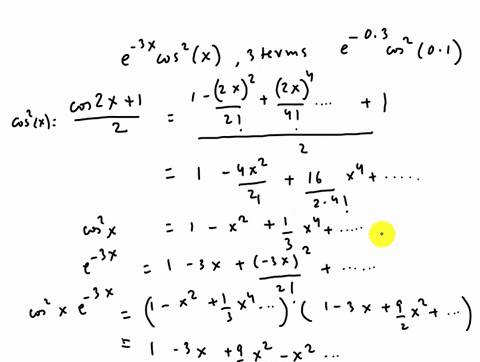 e^{-3x} cos²(x) , 3 terms e^{-0.3} cos²(0.1)
cos²(x): (cos2x+1)/2 = (1 - (2x)²/2! + (2x)⁴/4! .... + 1)/2
= 1 - 4x²/4 + 16/(2·4!) x⁴ + .....
cos²x = 1 - x² + 1/3 x⁴ + .....
e^{-3x} = 1 - 3x + (-3x)²/2! + ......
cos²x e^{-3x} = (1 - x² + 1/3 x⁴ ...) · (1 - 3x + 9/2 x² + ...)
= 1 - 3x + 9/2 x² - x² ...